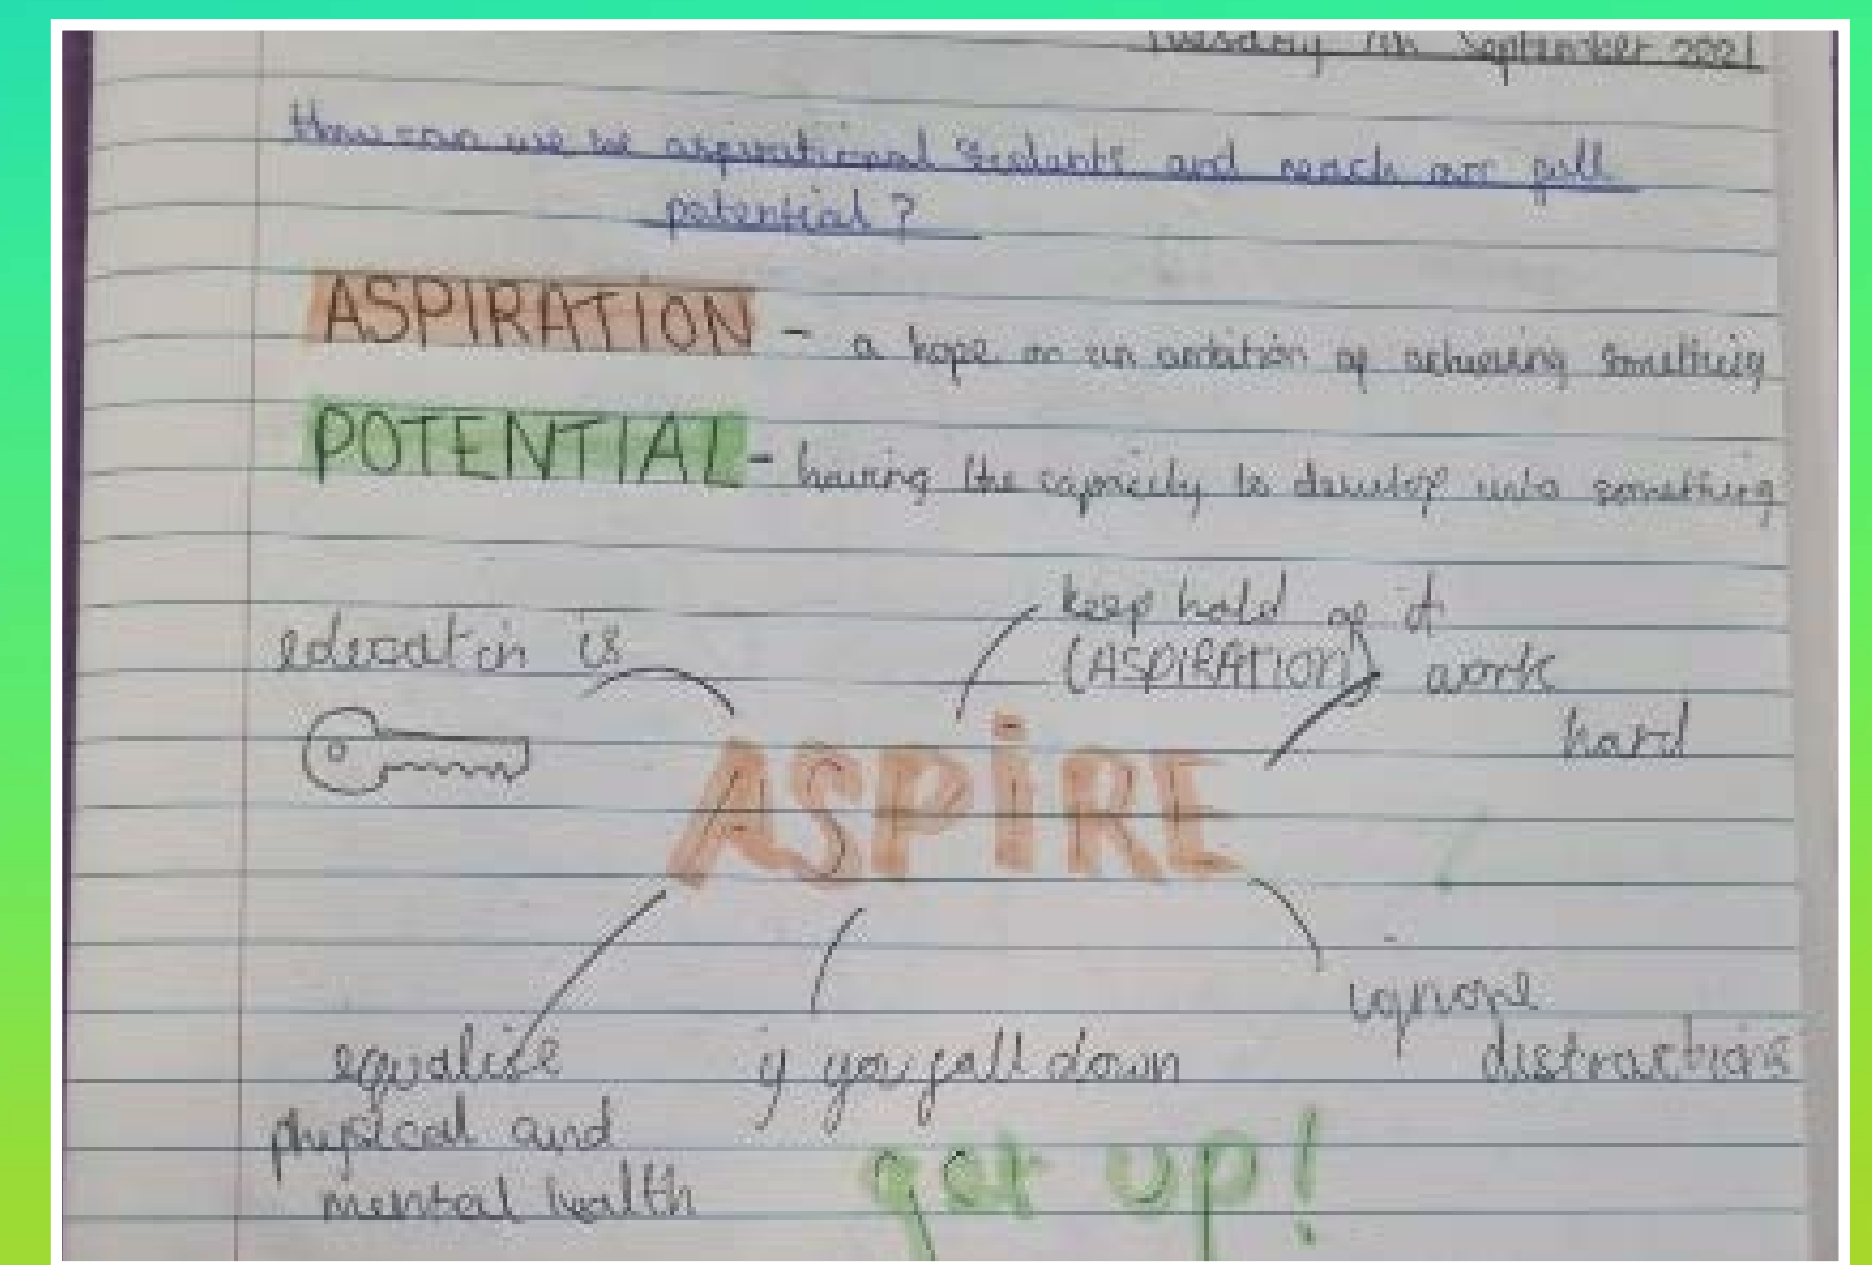 Tuesday 7th September 2021
How can we be aspirational students and reach our full
potential?
ASPIRATION - a hope or an ambition of achieving something
POTENTIAL - having the capacity to develop into something
education is
keep hold of it
(ASPIRATION)
work
hard
ASPIRE
ignore
distractions
equalise
physical and
mental health
if you fall down
get up!